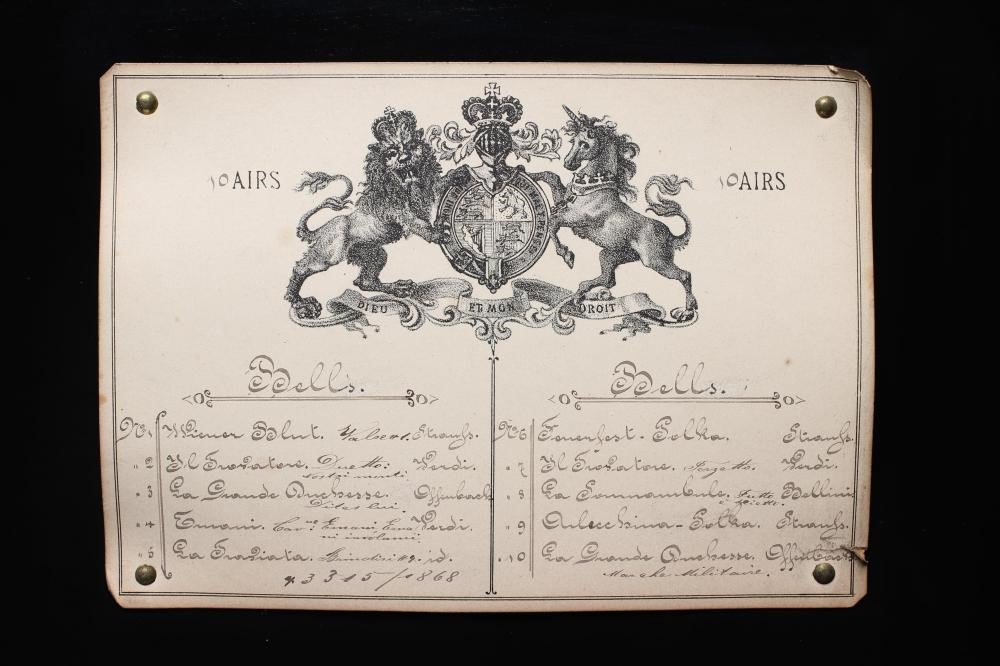 10 AIRS
10 AIRS
DIEU ET MON DROIT
Bells.
No. 1 Wiener Blut. Valses. Strauss.
" 2 Il Trovatore. Duetto: Verdi.
" 3 La Grande Duchesse. Offenbach
Dites lui.
" 4 Ernani. Cav: Ernani Verdi.
involami
" 5 La Traviata. Brindisi id.
3315/1868
Bells.
No 6 Feuerfest-Polka. Strauss.
" 7 Il Trovatore. Terzetto. Verdi.
" 8 La Sonnambule. Bellini
" 9 Arlecchina-Polka. Strauss.
" 10 La Grande Duchesse. Offenbach
Marche Militaire.